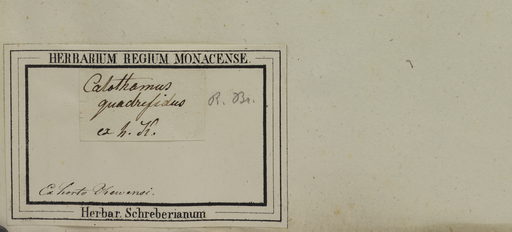 HERBARIUM REGIUM MONACENSE.
Calothamus
quadrifidus R. Br.
ex h. K.
Ex horto Kewensi.
Herbar. Schreberianum